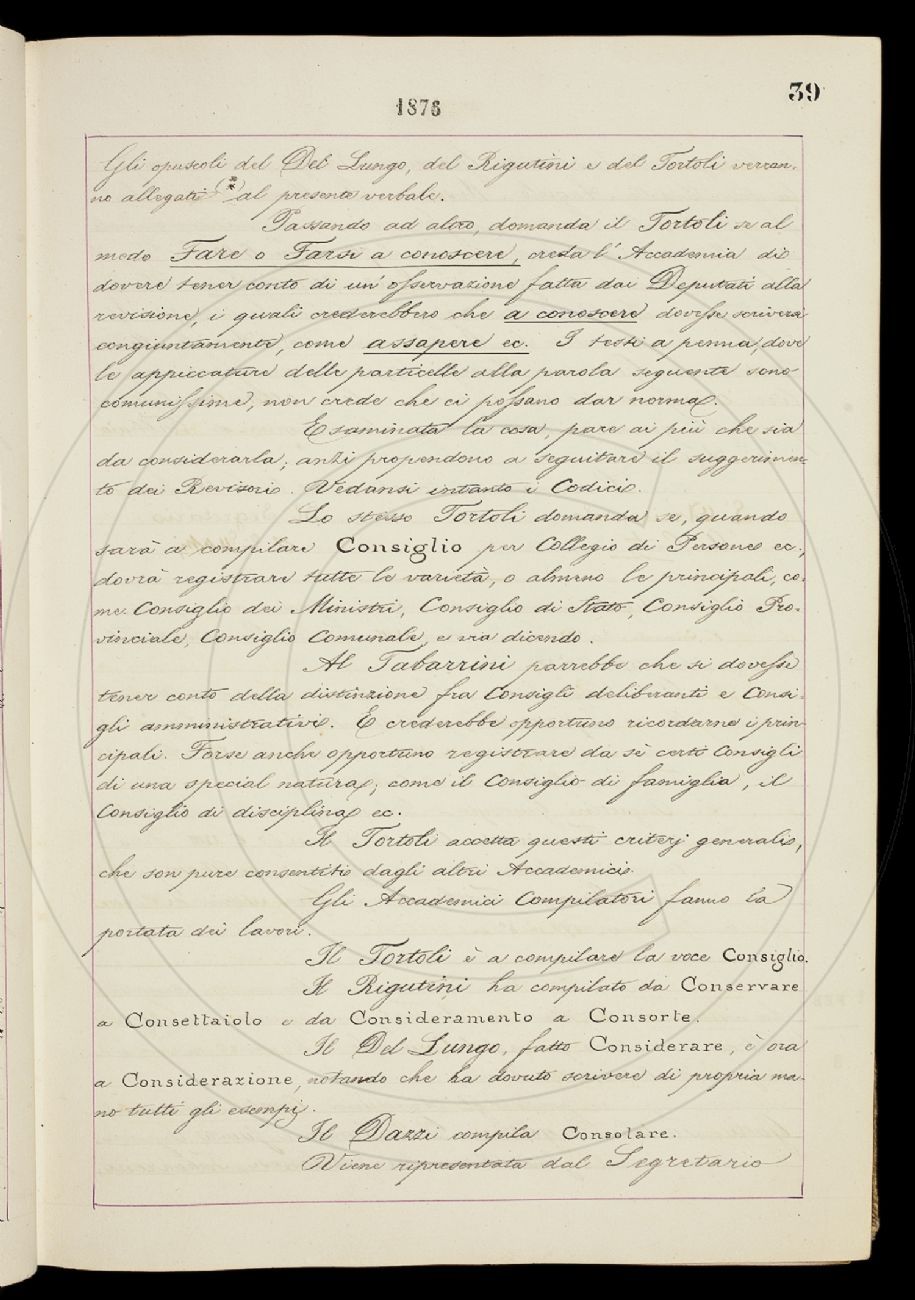 39
1876
Gli opuscoli del Del Lungo, del Rigutini e del Tortoli verran-
no allegati (*) al presente verbale.
Passando ad altro, domanda il Tortoli se al
modo Fare o Farsi a conoscere, creda l'Accademia di
dovere tener conto di un'osservazione fatta dai Deputati alla
revisione, i quali crederebbero che a conoscere dovesse scriversi
congiuntamente, come assapere ec. I testi a penna, dove
le appiccature delle particelle alla parola seguente sono
comunissime, non crede che ci possano dar norma.
Esaminata la cosa, pare ai più che sia
da considerarla; anzi propendono a seguitare il suggerimen-
to dei Revisori. Vedansi intanto i Codici.
Lo stesso Tortoli domanda se, quando
sarà a compilare Consiglio per Collegio di Persone ec.,
dovrà registrare tutte le varietà, o almeno le principali, co-
me Consiglio dei Ministri, Consiglio di Stato, Consiglio Pro-
vinciale, Consiglio Comunale, e via dicendo.
Al Tabarrini parrebbe che si dovesse
tener conto della distinzione fra Consigli deliberanti e Consi-
gli amministrativi. E crederebbe opportuno ricordarne i prin-
cipali. Forse anche opportuno registrare da sè certi Consigli
di una special natura, come il Consiglio di famiglia, il
Consiglio di disciplina ec.
Il Tortoli accetta questi criterj generali,
che son pure consentiti dagli altri Accademici.
Gli Accademici Compilatori fanno la
portata dei lavori.
Il Tortoli è a compilare la voce Consiglio.
Il Rigutini ha compilato da Conservare
a Consettaiolo e da Consideramento a Consorte.
Il Del Lungo, fatto Considerare, è ora
a Considerazione, notando che ha dovuto scrivere di propria ma-
no tutti gli esempj.
Il Dazzi compila Consolare.
Viene ripresentata dal Segretario